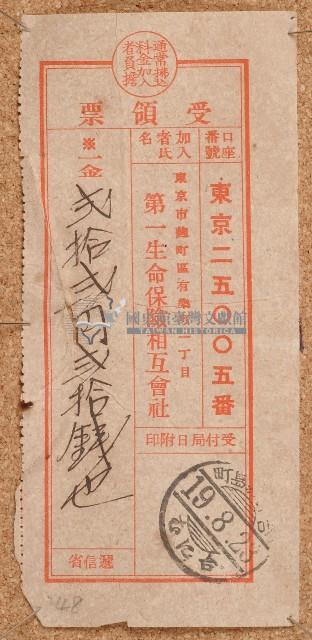 通常拂込
料金加入
者負擔
受領票
口座番號
東京二五〇〇五番
加入者氏名
東京市麴町區有樂町一丁目
第一生命保險相互會社
※一金
弐拾弐円弐拾銭也
受付局日附印
遞信省
19.8.2
國史館臺灣文獻館
TAIWAN HISTORICA
48